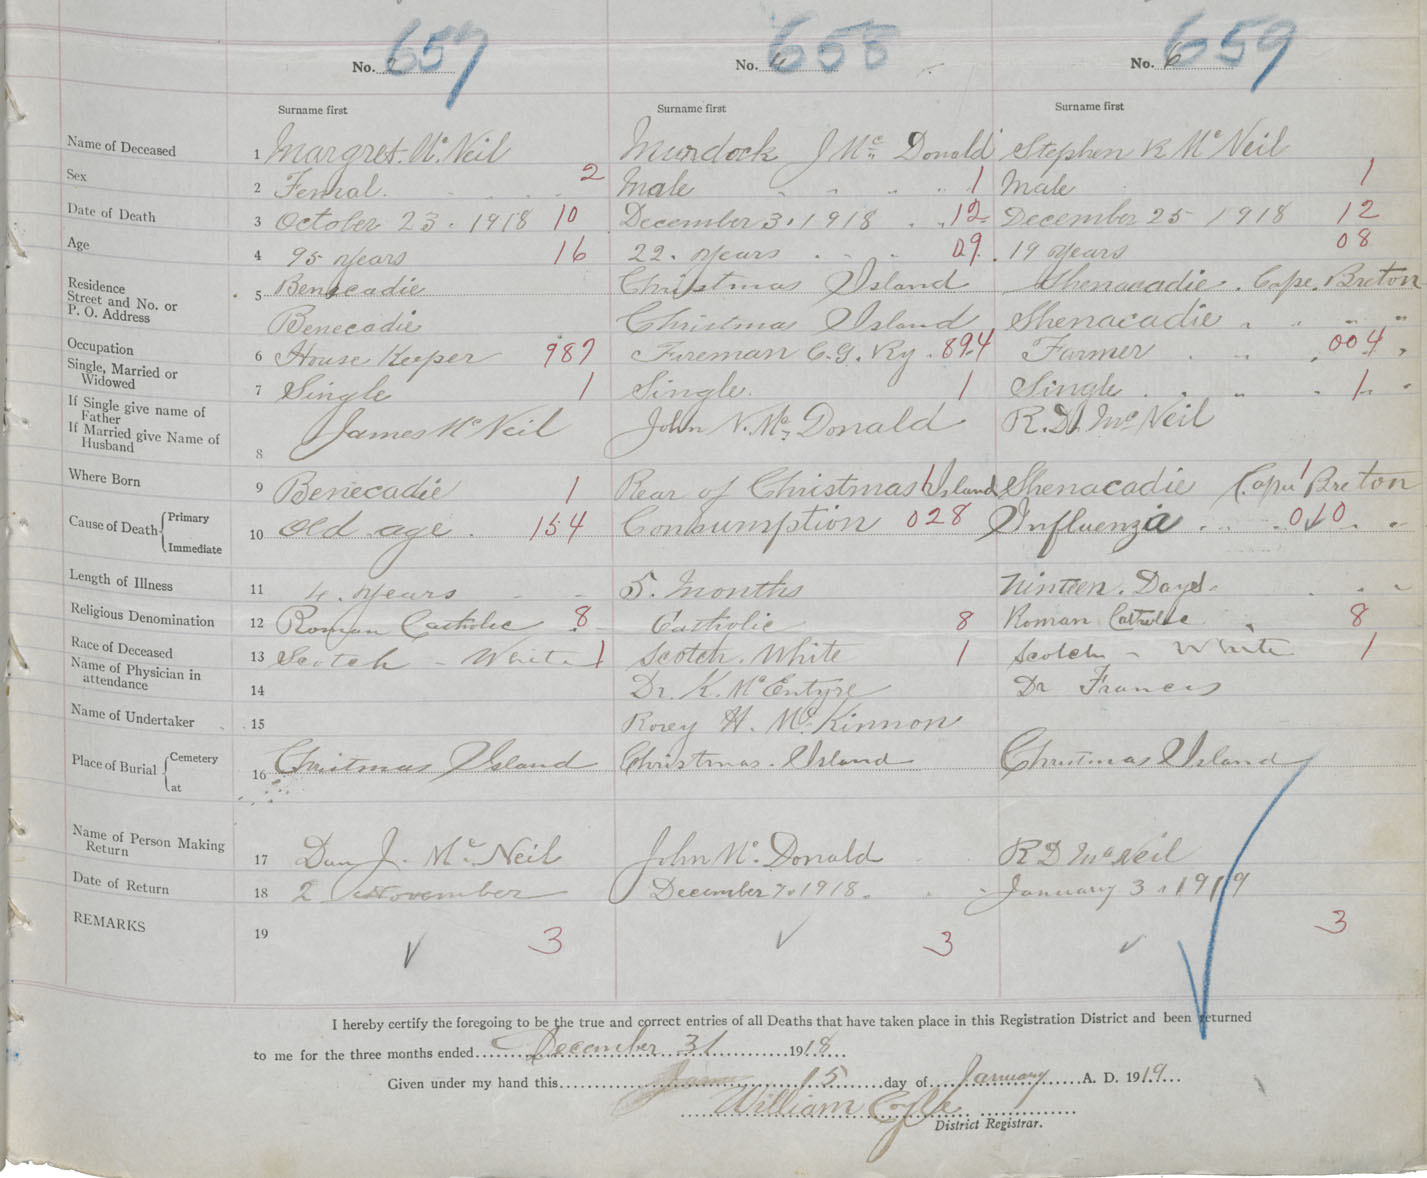 657 658 659
No. No. 4 No. 6
Surname first Surname first Surname first
Name of Deceased 1 Margret. Mc. Neil Murdock J Mc Donald Stephen R Mc Neil
Sex 2 Femal. 2 Male 1 Male 1
Date of Death 3 October 23. 1918 10 December 3. 1918 12 December 25 1918 12
Age 4 95 years 16 22. years 09 19 years 08
Residence
Street and No. or
P. O. Address
5 Benecadie Christmas Island Shenacadie. Cape. Breton
Benecadie Christmas Island Shenacadie " " " "
Occupation 6 House Keeper 987 Fireman C. G. Ry. 894 Farmer 004
Single, Married or
Widowed
7 Single 1 Single. 1 Single 1
If Single give name of
Father
If Married give Name of
Husband
8 James Mc Neil John N. Mc Donald R. D. Mc Neil
Where Born 9 Benecadie 1 Rear of Christmas Island 1 Shenacadie Cape Breton 1
Cause of Death Primary
Immediate
10 Old age. 154 Consumption 028 Influenzia 010
Length of Illness 11 4. years 5. Months Ninteen. Days
Religious Denomination 12 Roman Catholic 8 Catholic 8 Roman Catholic 8
Race of Deceased 13 Scotch - White 1 Scotch. White 1 Scotch - White 1
Name of Physician in
attendance
14 Dr. K. McEntyre Dr Francis
Name of Undertaker 15 Rorey H. McKinnon
Place of Burial Cemetery
at
16 Chritmas Island Christmas. Island Christmas Island
Name of Person Making
Return
17 Dan J. Mc. Neil John Mc. Donald R D McNeil
Date of Return 18 2 November December 7. 1918. January 3. 1919
REMARKS 19 3 3 3
I hereby certify the foregoing to be the true and correct entries of all Deaths that have taken place in this Registration District and been returned
to me for the three months ended December 31 1918
Given under my hand this 15 day of January A. D. 1919
William Coyle
District Registrar.